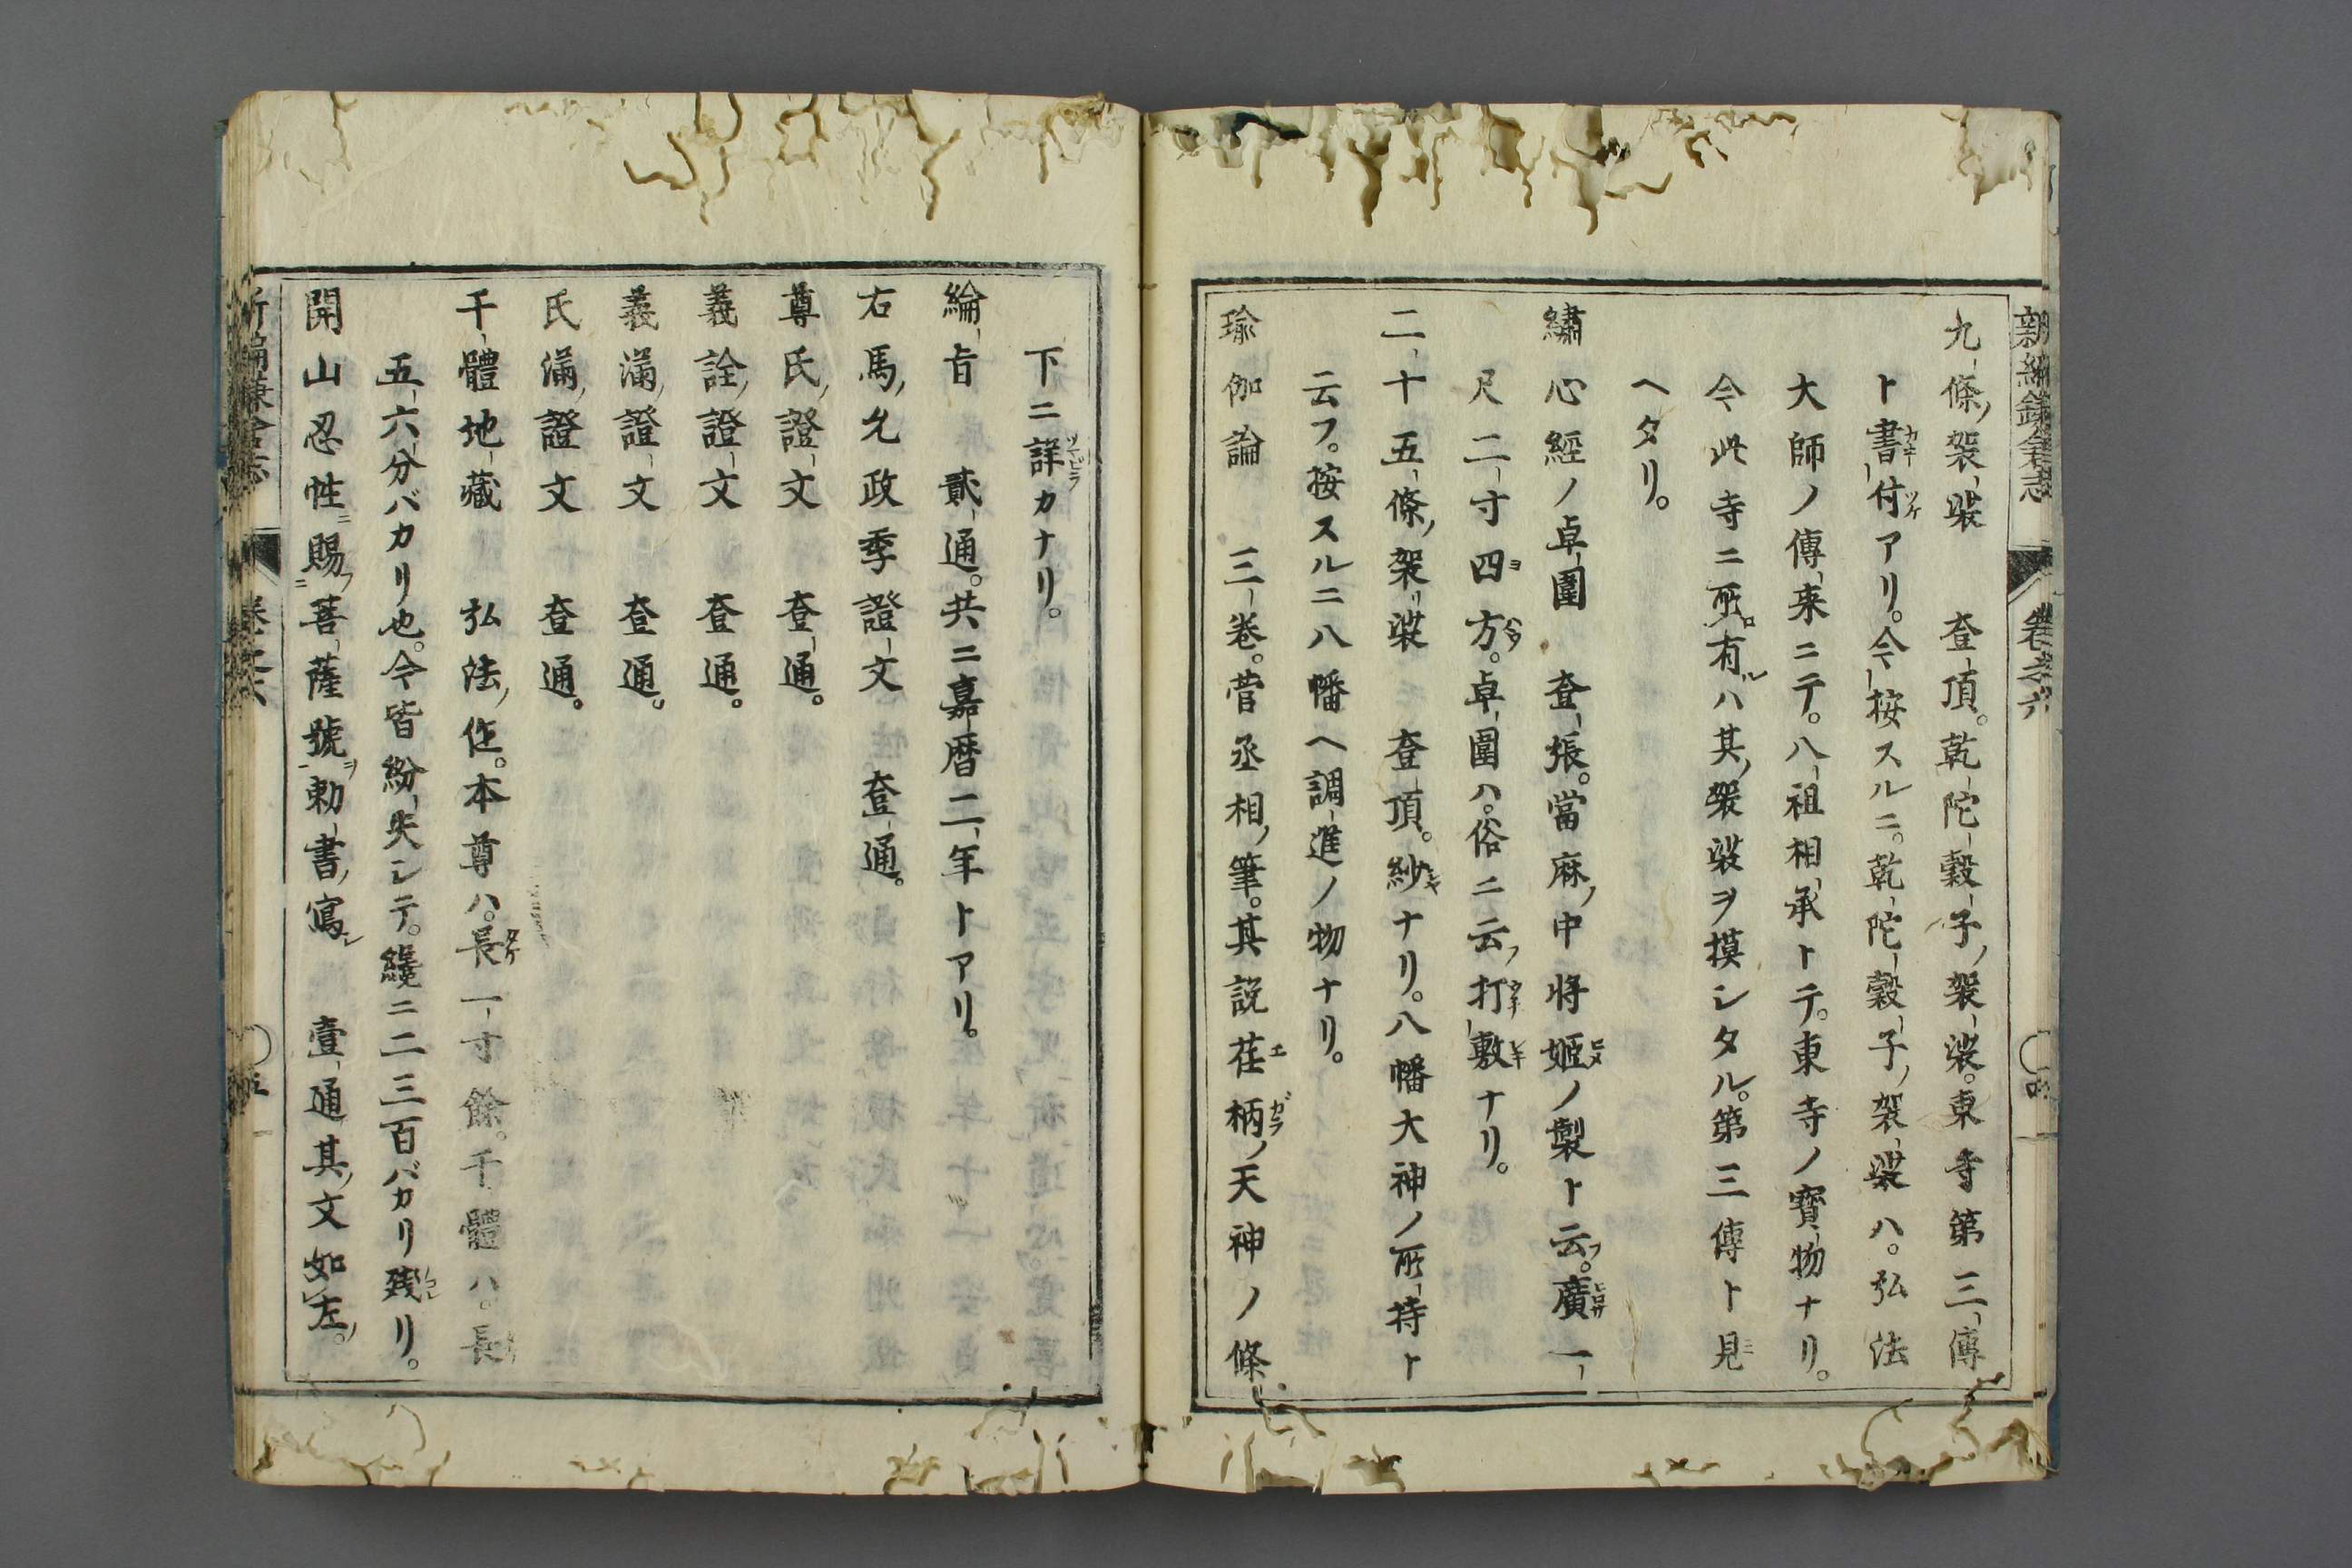 新編鎌倉志 卷之六 〇四
九條ノ袈裟 壹頂。乾陀穀子ノ袈裟。東寺第三傳
ト書付アリ。今按スルニ。乾陀穀子ノ袈裟ハ。弘法
大師ノ傳来ニテ。八祖相承トテ。東寺ノ寶物ナリ。
今此寺ニ所有ルハ其ノ袈裟ヲ摸シタル。第三傳ト見
ヘタリ。
繡心經ノ卓圍 壹張。當麻ノ中将姬ノ製ト云フ。廣一
尺二寸四方。卓圍ハ。俗ニ云ノ打敷ナリ。
二十五條ノ袈裟 壹頂。紗ナリ。八幡大神ノ所持ト
云フ。按スルニ八幡ヘ調進ノ物ナリ。
瑜伽論 三卷。菅丞相ノ筆。其説荏柄ノ天神ノ條
下ニ詳カナリ。
綸旨 貳通。共ニ嘉暦二年トアリ。
右馬ノ允政季證文 壹通。
尊氏ノ證文 壹通。
義詮ノ證文 壹通。
義滿ノ證文 壹通。
氏滿ノ證文 壹通。
千體地藏 弘法ノ作。本尊ハ。長一寸餘。千體ハ。長
五六分バカリ也。今皆紛失シテ。纔ニ二三百バカリ殘リ。
開山忍性ニ賜フニ菩薩號ヲ勅書ノ寫シ 壹通其ノ文如左ノ。
新編鎌倉志 卷之六 〇五